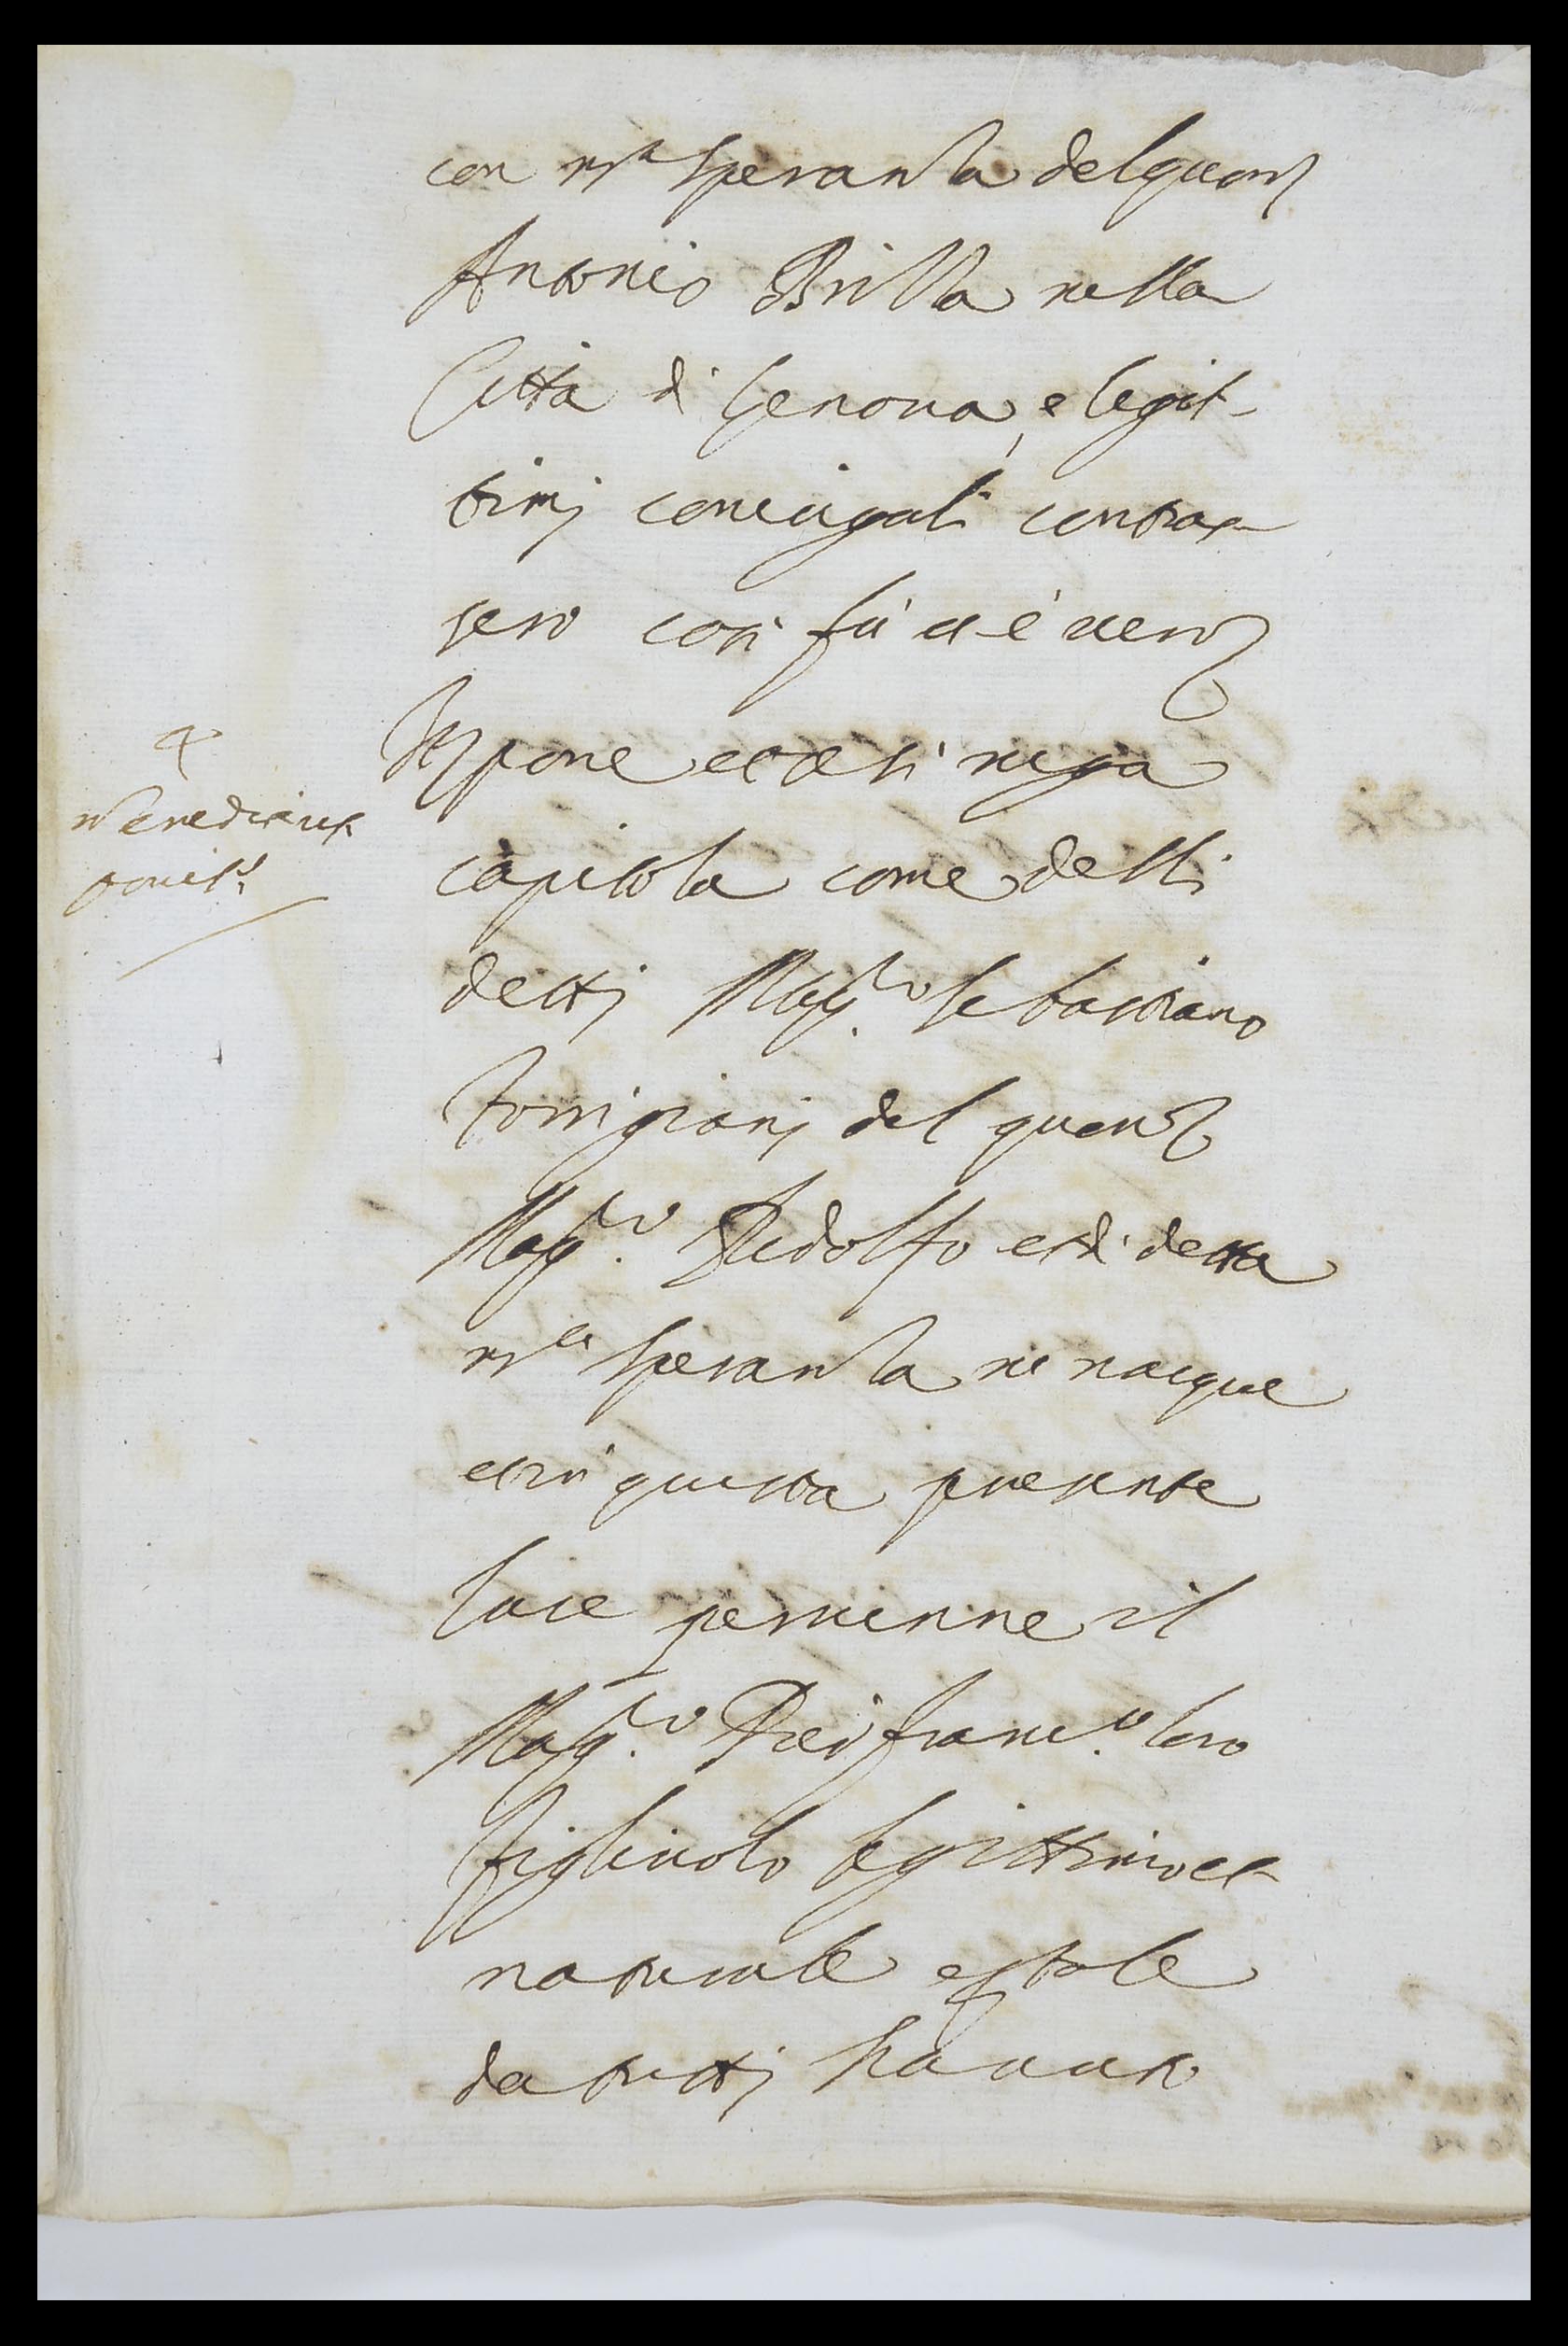 con m.ª Speranza del quon
Antonio Brilla nella
Città di Genova, e legit-
timi coniugali contras
sero così fù et è vero
4
Benedictus
Ite pone et se si nega
capitola come delli
detti Mag.co Sebastiano
Torrigiani del quon
Mag.co Ridolfo et di detta
m.ª Speranza ne nacque
et in questa presente
luce pervenne il
Mag.co Pier franc.o loro
figliuolo legittimo et
naturale et p tale
da tutti havuto